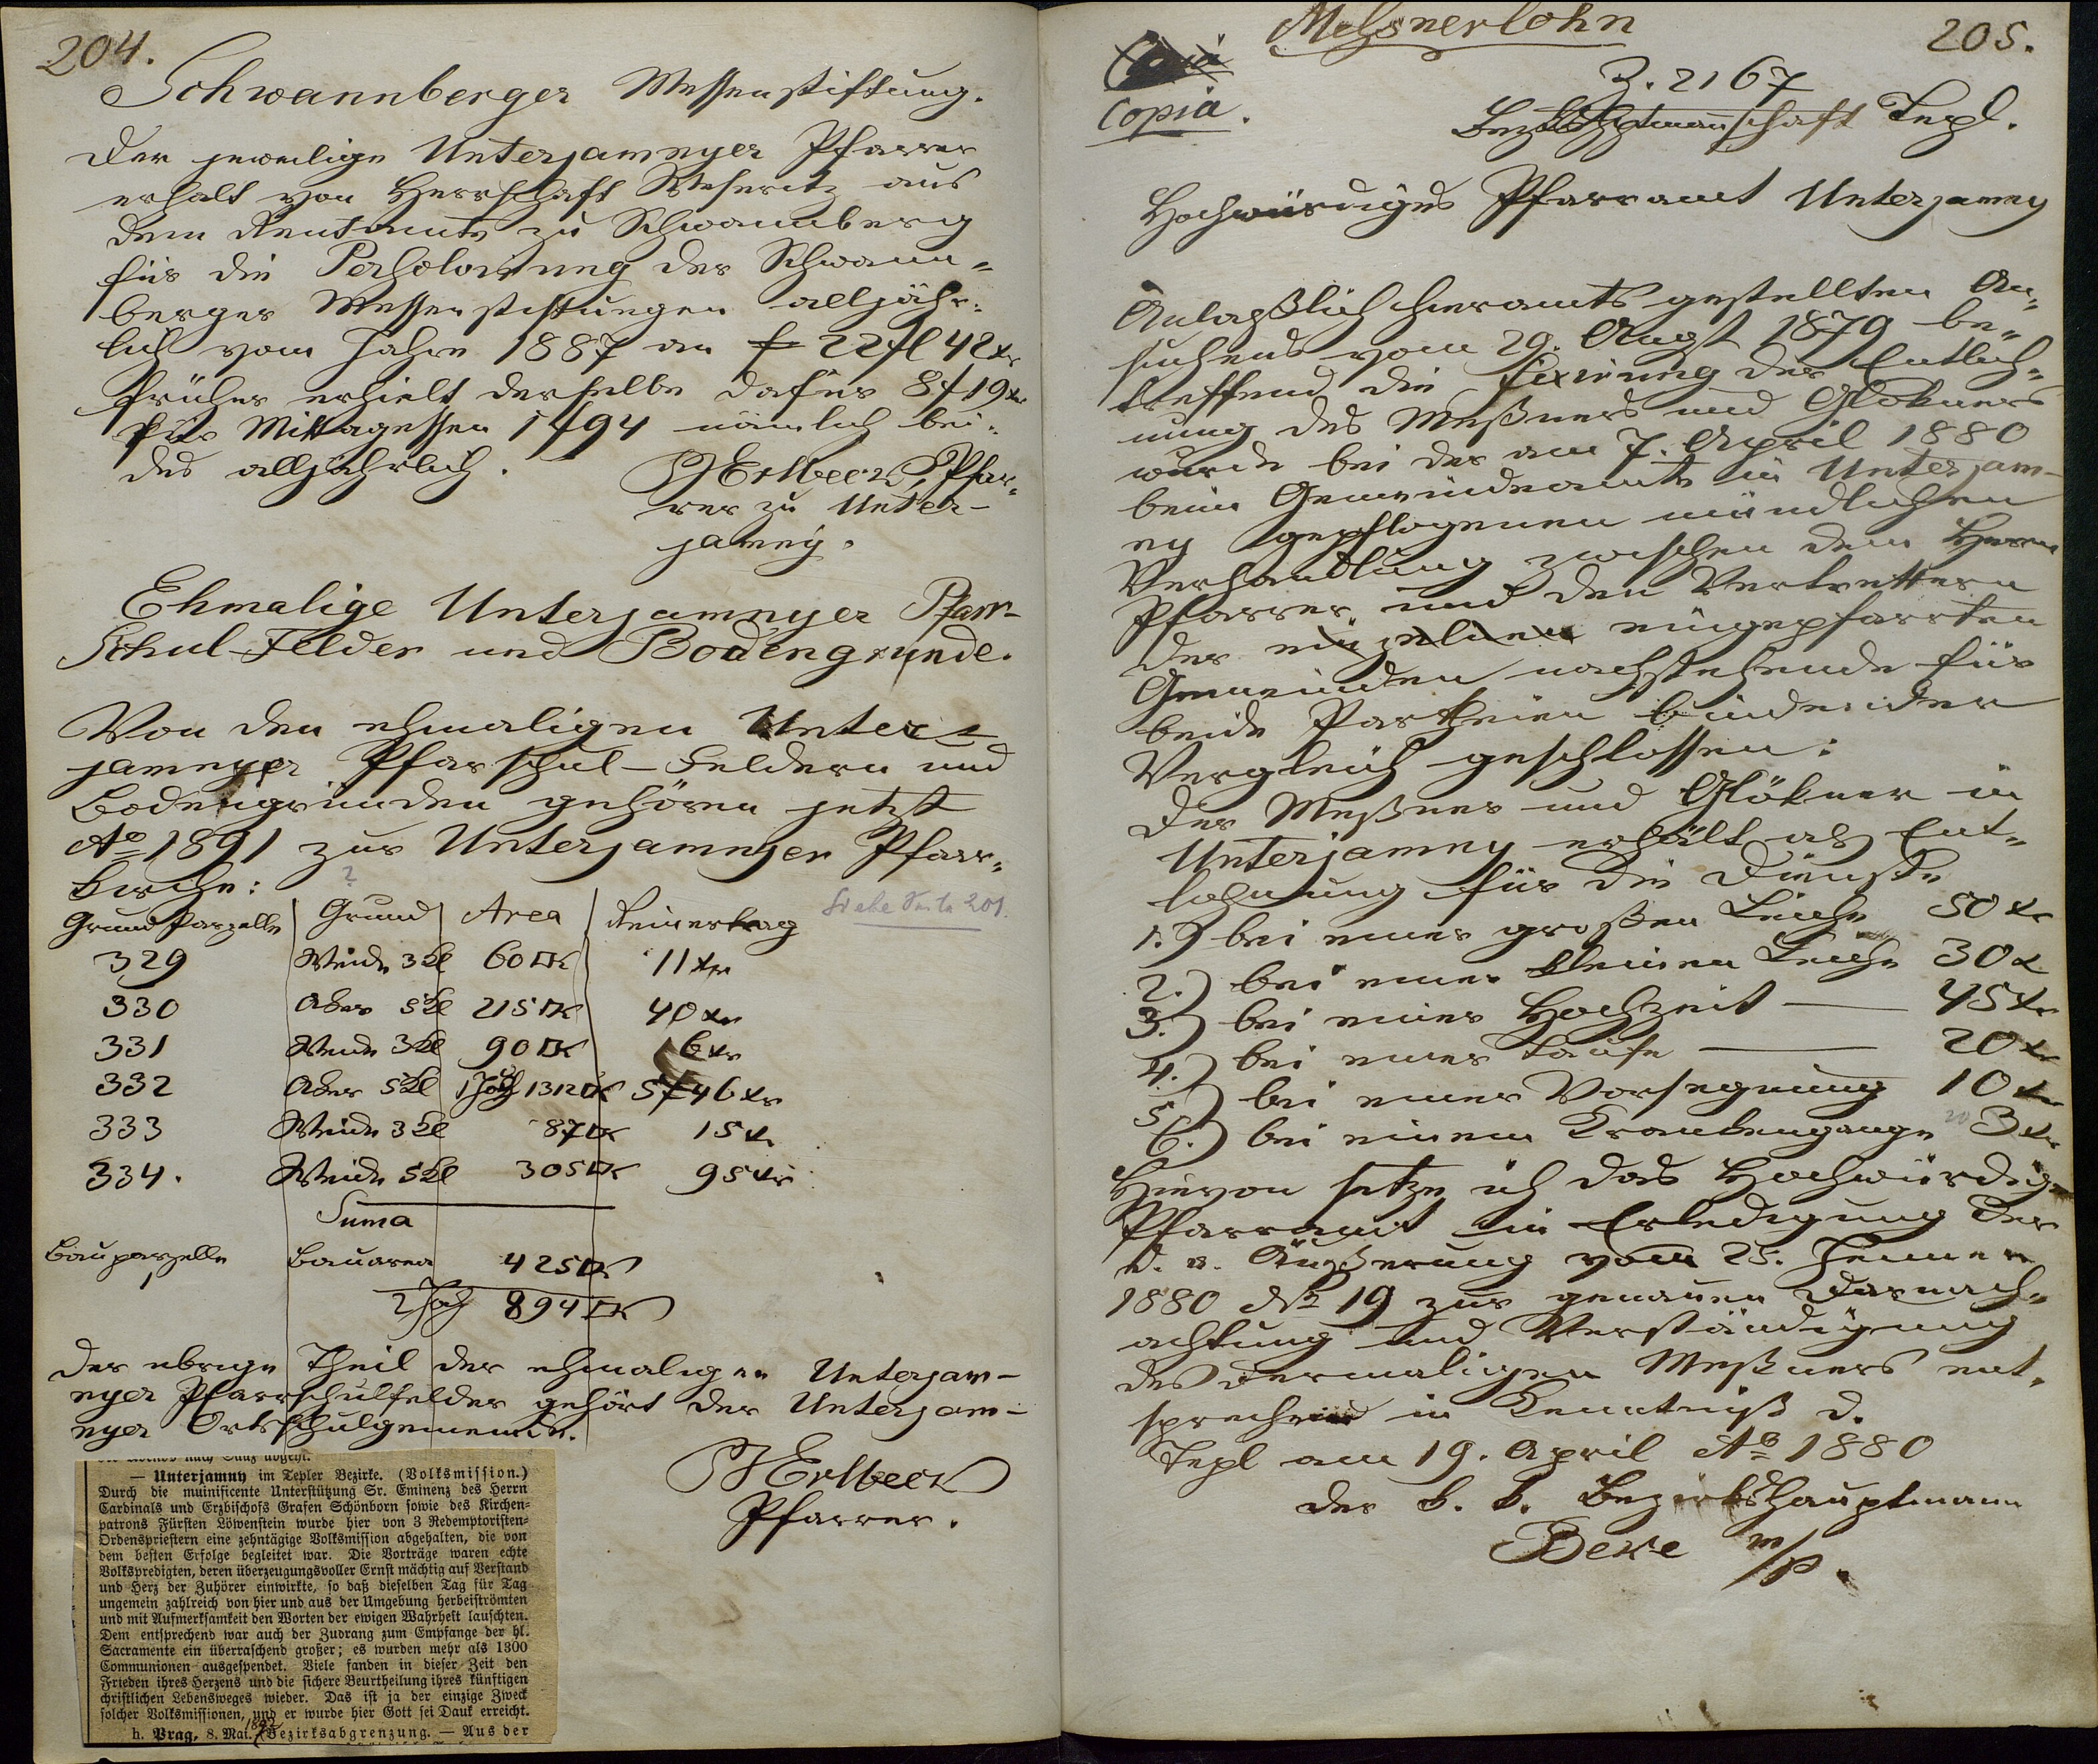 204.
Schwannberger Messenstiftung.
Der jeweilige Unterjamnyer Pfarrer
erhalt von Herrschaft Weseritz aus
dem Rentamte zu Schwannberg
für die Persolvirung der Schwann-
berger Messenstiftungen alljähr-
lich vom Jahre 1887 an f 22 fl 42 xr
früher erhielt derselbe dafür 8 f 19 xr
für Mittagessen 1 f 94 nämlich bei-
des alljährlich.
Erlbeck, Pfar-
rer zu Unter-
jamny.
Ehmalige Unterjamnyer Pfarr-
Schul-Felder und Bodengrunde.
Von den ehmaligen Unter-
jamnyer Pfarschul-Feldern und
Bodengründen gehören jetzt
Ao 1891 zur Unterjamnyer Pfarr-
kirche:
?
Grund Parzelle Grund Area Reinertrag Siehe Seite 201.
329 Weide 3 Kl 60 □K 11 xr
330 Aker 5 Kl 215 □K 40 xr
331 Weide 3 Kl 90 □K 6 xr
332 Aker 5 Kl 1 Joch 1312 □K 5 f 46 xr
333 Weide 3 Kl 87 □K 15 xr
334. Weide 5 Kl 305 □K 95 xr
Suma
Bauparzelle Bauarea 425 □K
1
2 Joch 894 □K
Der ubrige Theil der ehmaligen Unterjam-
nyer Pfarrschulfelder gehört der Unterjam-
nyer Ortsschulgemeinde.
Erlbeck
Pfarrer.
— Unterjamny im Tepler Bezirke. (Volksmission.)
Durch die muinificente Unterstützung Sr. Eminenz des Herrn
Cardinals und Erzbischofs Grafen Schönborn sowie des Kirchen-
patrons Fürsten Löwenstein wurde hier von 3 Redemptoristen-
Ordenspriestern eine zehntägige Volksmission abgehalten, die von
dem besten Erfolge begleitet war. Die Vorträge waren echte
Volkspredigten, deren überzeugungsvoller Ernst mächtig auf Verstand
und Herz der Zuhörer einwirkte, so daß dieselben Tag für Tag
ungemein zahlreich von hier und aus der Umgebung herbeiströmten
und mit Aufmerksamkeit den Worten der ewigen Wahrheit lauschten.
Dem entsprechend war auch der Zudrang zum Empfange der hl.
Sacramente ein überraschend großer; es wurden mehr als 1300
Communionen ausgespendet. Viele fanden in dieser Zeit den
Frieden ihres Herzens und die sichere Beurtheilung ihres künftigen
christlichen Lebensweges wieder. Das ist ja der einzige Zweck
solcher Volksmissionen, und er wurde hier Gott sei Dank erreicht.
h. Prag, 8. Mai. 1892 Bezirksabgrenzung. — Aus der
Meßsnerlohn
205.
Copia.
Z. 2167
Bezkshptmannschaft Tepl.
Hochwürdiges Pfarramt Unterjamny
Anlaßlich hieramts gestellten An-
suchens vom 29. Augst 1879 be-
treffend die Fixirung der Entloh-
nung des Meßners und Glökners
wurde bei der am 7. April 1880
beim Gemeindeamte in Unterjam-
ny gepflogenen mündlichen
Verhandlung zwischen dem Herrn
Pfarrer und den Vertrettern
der einzelnen eingepfarrten
Gemeinden nachstehende für
beide Partheien bindender
Vergleich geschlossen:
Der Meßner und Glökner in
Unterjamny erhält als Ent-
lohnung für die Dienste
1.) bei einer großen Leiche 50 xr
2.) bei einer kleinen Leiche 30 x
3.) bei einer Hochzeit — 45 xr
4.) bei einer Taufe — 20 xr
5.) bei einer Vorsegnung 10 xr
6.) bei einem Krankengange 20 3 xr
Hievon setze ich das Hochwürdige
Pfarramt in Erledigung der
d. a. Äußerung vom 25. Jenner
1880 No 19 zur genauen Darnach-
achtung und Verständigung
des dermaligen Meßners ent-
sprechend in Kenntniß d.
Tepl am 19. April Ao 1880
Der k. k. Bezirkshauptmann
m/p.